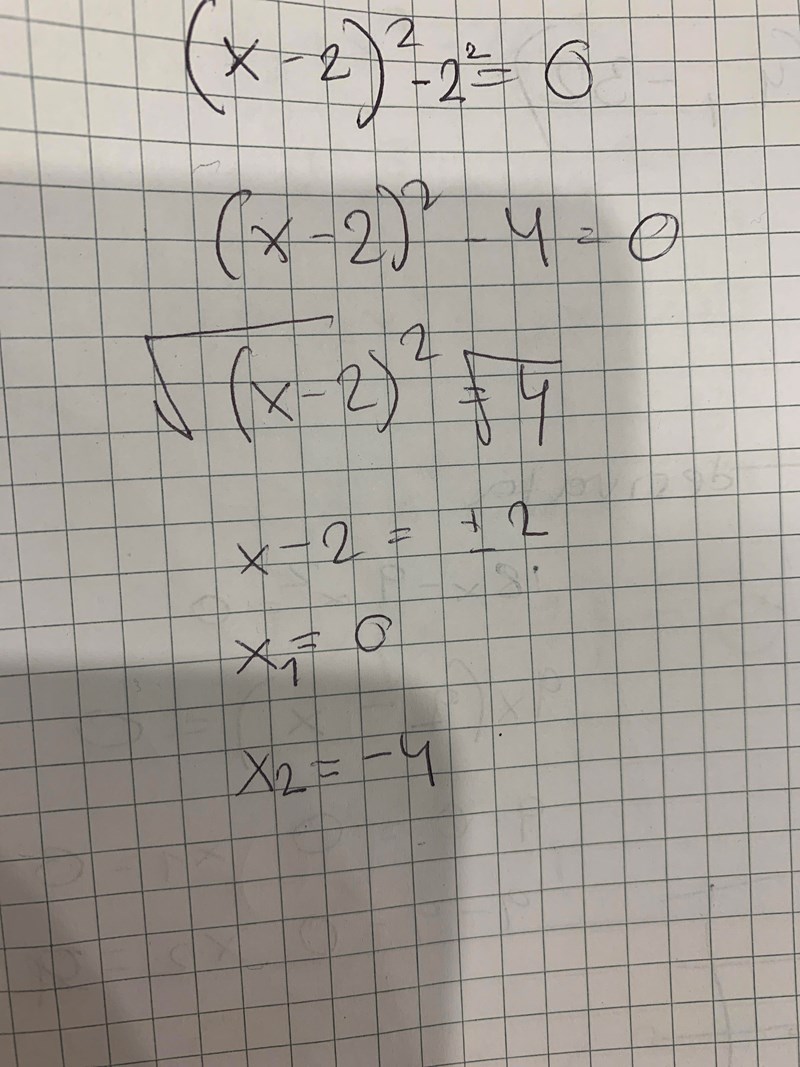 (x-2)² - 2² = 0
(x-2)² - 4 = 0
√(x-2)² = √4
x - 2 = ± 2
x₁ = 0
x₂ = -4